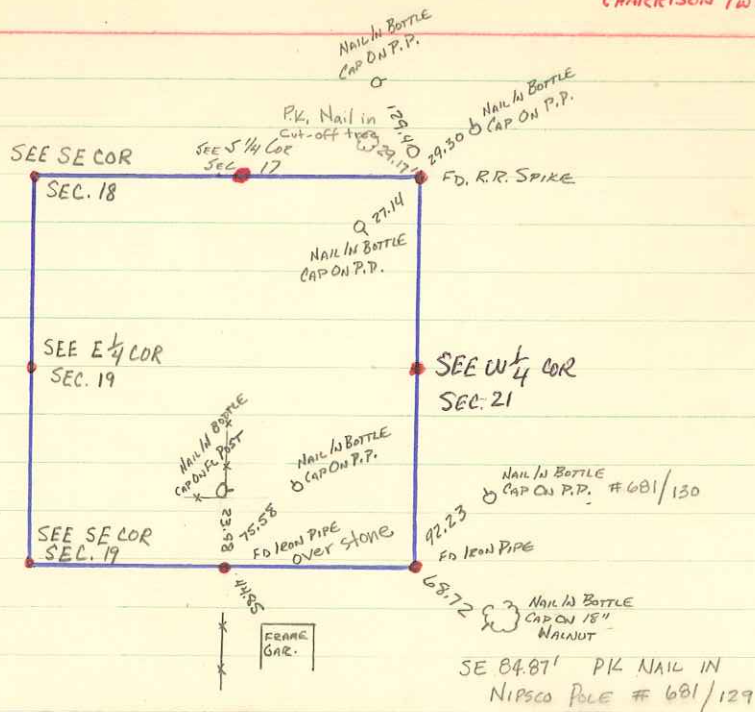 NAIL IN BOTTLE
CAP ON P.P.
129.40
P.K. Nail in
Cut-off tree
29.17'
NAIL IN BOTTLE
CAP ON P.P.
29.30
SEE SE COR
SEC. 18
SEE S 1/4 COR
SEC 17
FD. R.R. SPIKE
27.14
NAIL IN BOTTLE
CAP ON P.P.
SEE E 1/4 COR
SEC. 19
SEE W 1/4 COR
SEC. 21
NAIL IN BOTTLE
CAP ON FC POST
23.98
NAIL IN BOTTLE
CAP ON P.P.
75.58
NAIL IN BOTTLE
CAP ON P.P. #681/130
92.23
SEE SE COR
SEC. 19
FD IRON PIPE
over stone
FD IRON PIPE
44.85
68.72
FRAME
GAR.
NAIL IN BOTTLE
CAP ON 18"
WALNUT
SE 84.87' PK NAIL IN
NIPSCO POLE # 681/129